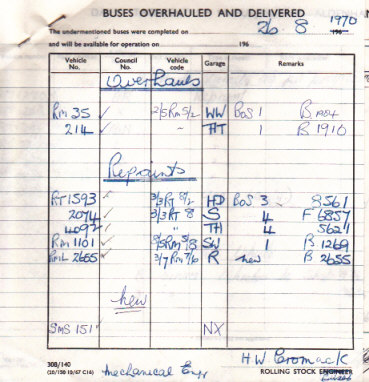 BUSES OVERHAULED AND DELIVERED
The undermentioned buses were completed on 26 8 1970 196
and will be available for operation on 196
Vehicle No. Council No. Vehicle code Garage Remarks
Overhauls
RM 35 ✓ 2/5 RM 5/2 WW BoS 1 B 1984
214 ✓ - HT 1 B 1910
Repaints
RT 1593 ✓ 3/3 RT 8/2 HD BoS 3 8561
2074 ✓ 3/3 RT 8 S 4 F 6857
4092 ✓ " TH 4 5621
RM 1101 ✓ 5/5 RM 5/8 SW 1 B 1269
RML 2655 ✓ 3/7 RM 7/6 R new B 2655
new
SMS 151 ✓ NX
308/140
(20/150 10/67 C16) Mechanical Engr H.W. Cromack
ROLLING STOCK ENGINEER